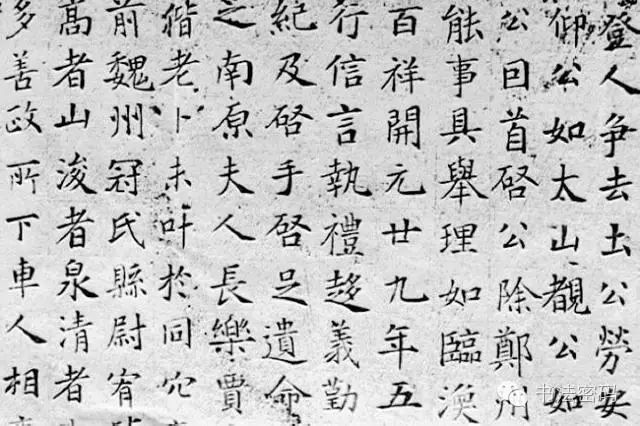 登人争去土公勞安
仰公如太山覩公如
公回首啓公除鄭州
能事具舉理如臨渙
百祥開元廿九年五
行信言執禮趍義勤
紀及啓手啓足遺命
之南原夫人長樂賈
偕老卜未叶於同穴
前魏州冠氏縣尉宥
高者山浚者泉清者
多善政所下車人相
书法密码